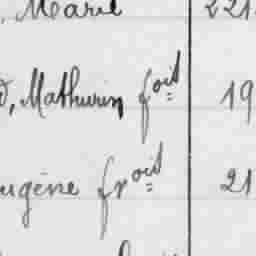 , Marie 221
, Mathurin foit 19
ugène froit 21